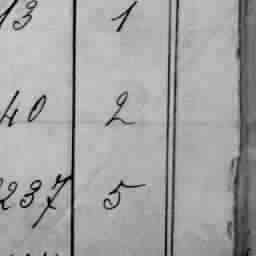 13 1
40 2
237 5